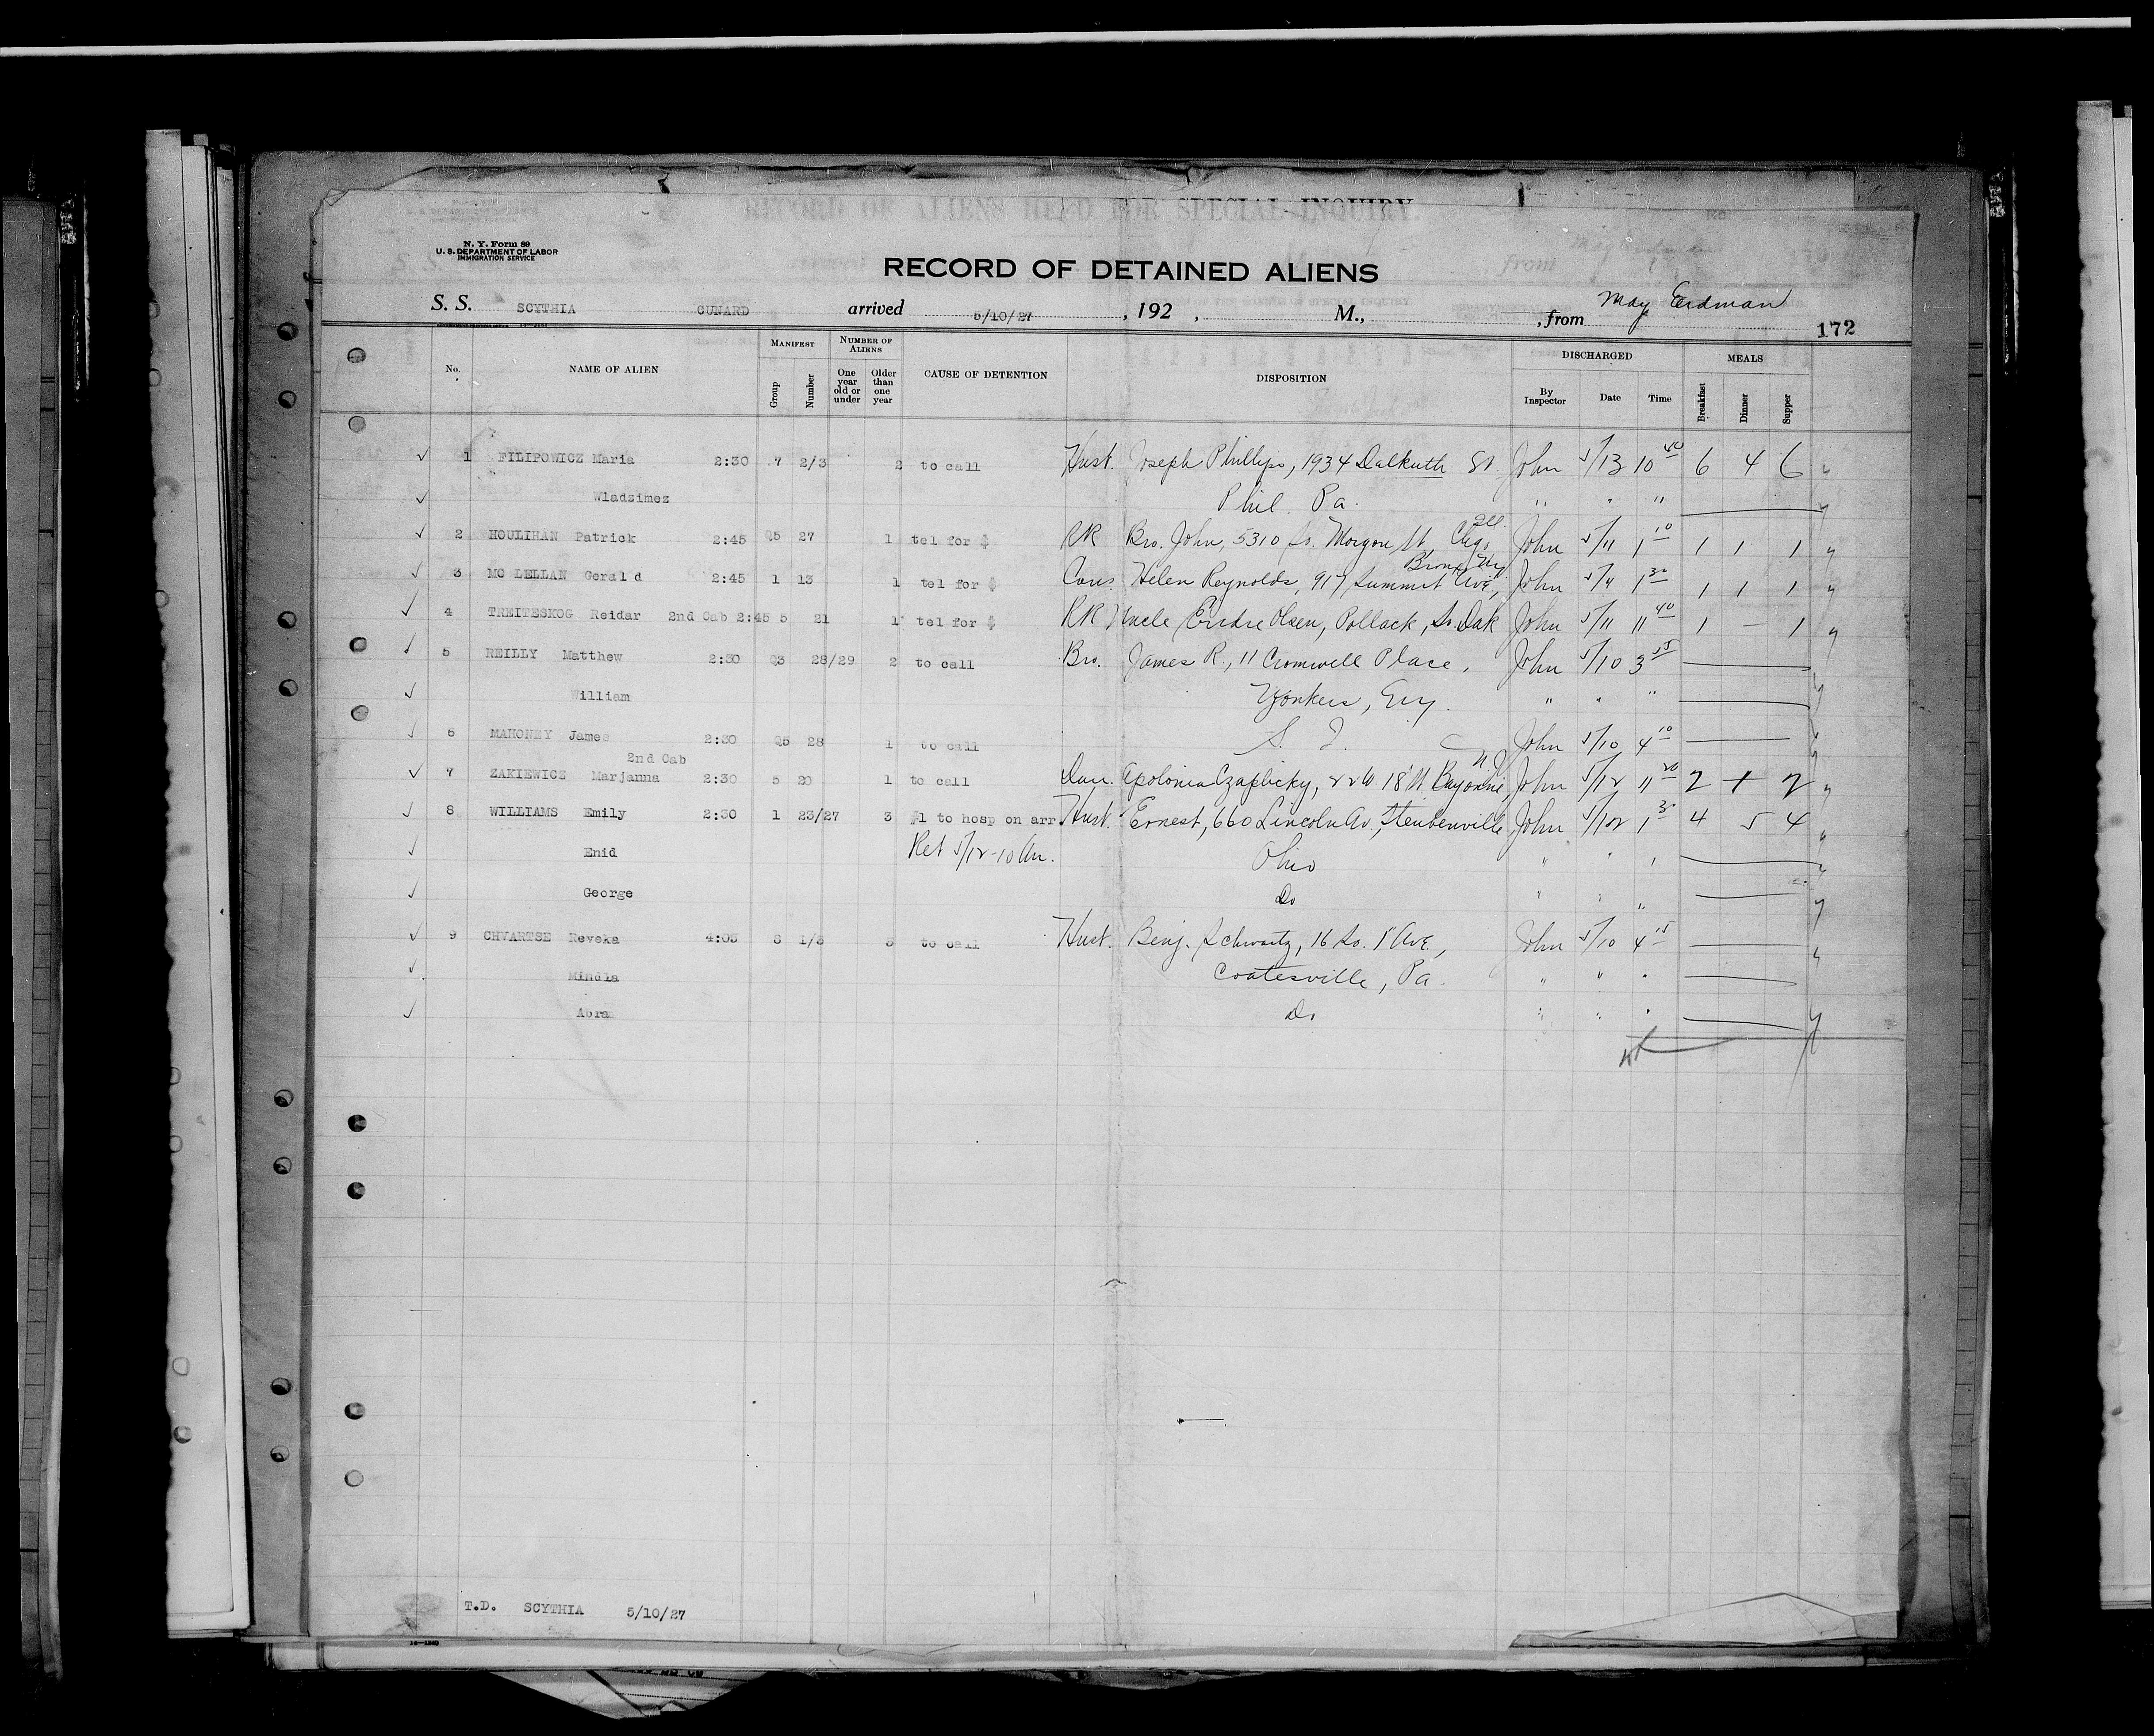 RECORD OF ALIENS HELD FOR SPECIAL INQUIRY.
N. Y. Form 89
U. S. DEPARTMENT OF LABOR
IMMIGRATION SERVICE
RECORD OF DETAINED ALIENS
S. S. SCYTHIA CUNARD arrived 5/10/27, 192 , M., , from May Erdman
172
No. NAME OF ALIEN MANIFEST Group Number NUMBER OF ALIENS One year old or under Older than one year CAUSE OF DETENTION DISPOSITION DISCHARGED By Inspector Date Time MEALS Breakfast Dinner Supper
✓ 1 FILIPOWICZ Maria 2:30 7 2/3 2 to call Hust. Joseph Phillips, 1934 Dalkuth St. John 5/13 10 40 6 4 6
✓ Wladzimez Phil. Pa. " " "
✓ 2 HOULIHAN Patrick 2:45 Q5 27 1 tel for $ RR Bro. John, 5310 So. Morgan St. Chgo, Ill. John 5/11 1 10 1 1 1
✓ 3 MC LELLAN Gerald 2:45 1 13 1 tel for $ Cous. Helen Reynolds, 917 Summit Ave, Bronx Ny John 1 30 1 1 1
✓ 4 TREITESKOG Reidar 2nd Cab 2:45 5 21 1 tel for $ RR Uncle Olsen, Pollack, So. Dak John 5/11 11 40 1 – 1
✓ 5 REILLY Matthew 2:30 Q3 28/29 2 to call Bro. James R., 11 Cromwell Place, John 5/10 3 55
✓ William Yonkers, " " "
✓ 6 MAHONEY James 2:30 Q5 28 1 to call John 5/10 4 10
2nd Cab
✓ 7 ZAKIEWICZ Marjanna 2:30 5 20 1 to call Dau. Apolonia Czaplicky, 22 W. 18 St Bayonne, N.J. John 5/12 11 20 2 1 2
✓ 8 WILLIAMS Emily 2:30 1 23/27 3 #1 to hosp on arr. Hust. Ernest, 660 Lincoln Av., Steubenville John 1 30 4 5 4
✓ Enid Ret 5/12-10 Am. Ohio " " "
✓ George Do " " "
✓ 9 CHVARTSE Reveka 4:05 8 1/3 3 to call Hust. Benj. Schwartz, 16 So. 1" Ave, John 5/10 4 15
✓ Mindla Coatesville, Pa. " " "
✓ Abra Do " " "
T.D. SCYTHIA 5/10/27